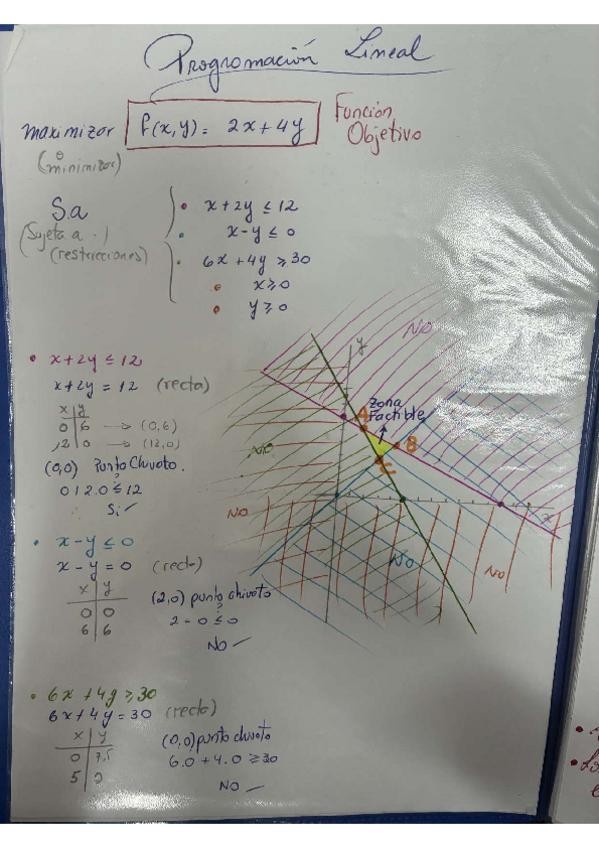 Programación Lineal
maximizar f(x,y) = 2x + 4y Función Objetivo
(o minimizar)
S.a
(Sujeta a .)
(restricciones)
• x + 2y ≤ 12
• x - y ≤ 0
• 6x + 4y ≥ 30
• x ≥ 0
• y ≥ 0
• x + 2y ≤ 12
x + 2y = 12 (recta)
x | y
0 | 6 → (0,6)
12 | 0 → (12,0)
(0,0) Punto Chivato.
0 + 2.0 ≤ 12
Si ✓
• x - y ≤ 0
x - y = 0 (recta)
x | y
0 | 0
6 | 6
(2,0) punto chivato
2 - 0 ≤ 0
?
NO
• 6x + 4y ≥ 30
6x + 4y = 30 (recta)
x | y
0 | 7,5
5 | 0
(0,0) punto chivato
6.0 + 4.0 ≥ 30
NO
y
NO
Zona
Factible
A
B
C
NO
NO
x
NO
NO